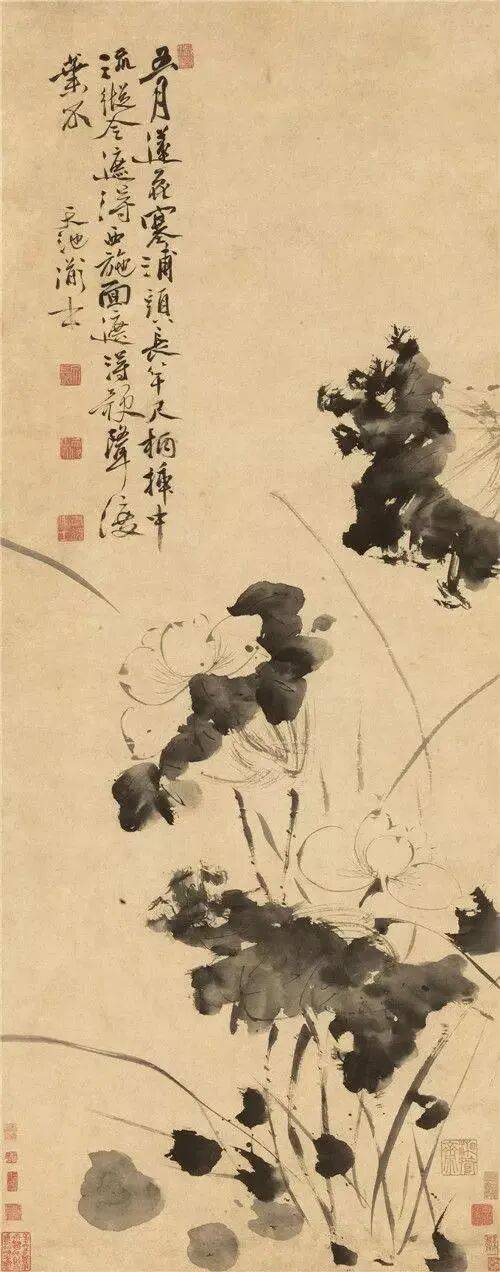 五月蓮花塞浦頭長竿尺柄插中
流縱令遮得西施面遮得歌聲渡
葉不
天池漱士